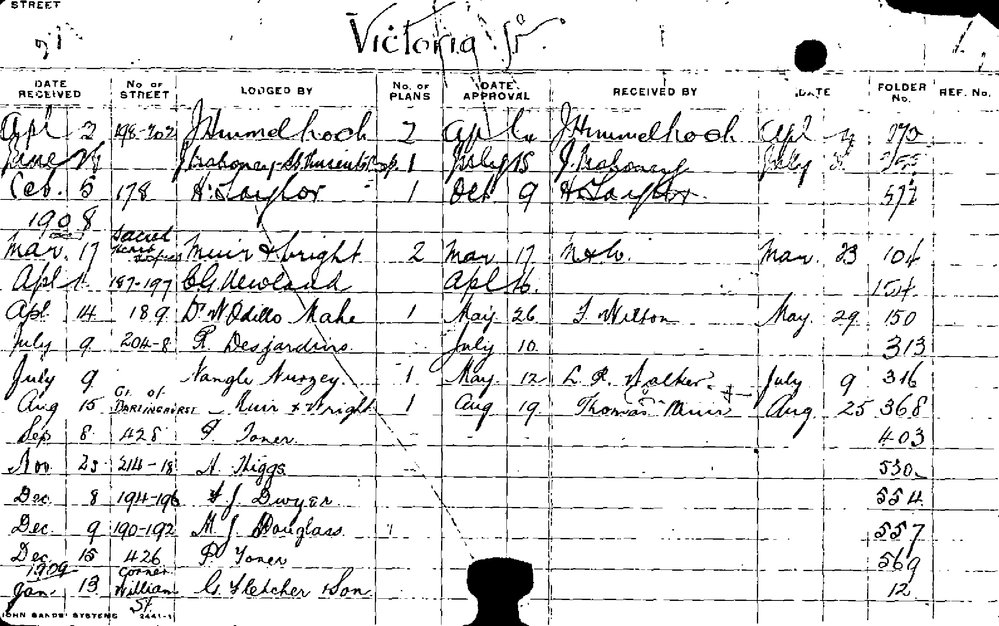 STREET
Victoria St.
DATE RECEIVED No OF STREET LODGED BY No. OF PLANS DATE APPROVAL RECEIVED BY DATE FOLDER No. REF. No.
Apl 2 198-202 J Himmelhoch 2 Apl J Himmelhoch Apl 270
June J Mahoney 1 July 15 J Mahoney July
Oct. 5 178 H. Taylor 1 Oct 9 H. Taylor 577
1908
Mar. 17 Sacred Heart Muir & Wright 2 Mar 17 M & W. Mar. 23 104
Apl 187-197 C G Newland Apl 16. 154
Apl 14 189 Dr W Odillo Mahe 1 May 26 F Wilson May 29 150
July 9 204-8 P. Desjardins July 10. 313
July 9 Nangle Nurzey. 1 May 12 L. R. Walker. July 9 316
Aug 15 Cr. of DARLINGHURST Muir & Wright 1 Aug 19. Thomas Muir Aug 25 368
Sep. 8 428 P. Toner 403
Nov. 23 214-18 H. Higgs 530
Dec. 8 194-196 J. Dwyer 554
Dec. 9 190-192 M. J Douglass 557
Dec 15 426 P Toner 569
1909
Jan. 13 Corner William St. G. Fletcher & Son 12
JOHN SANDS' SYSTEMS 2441-1